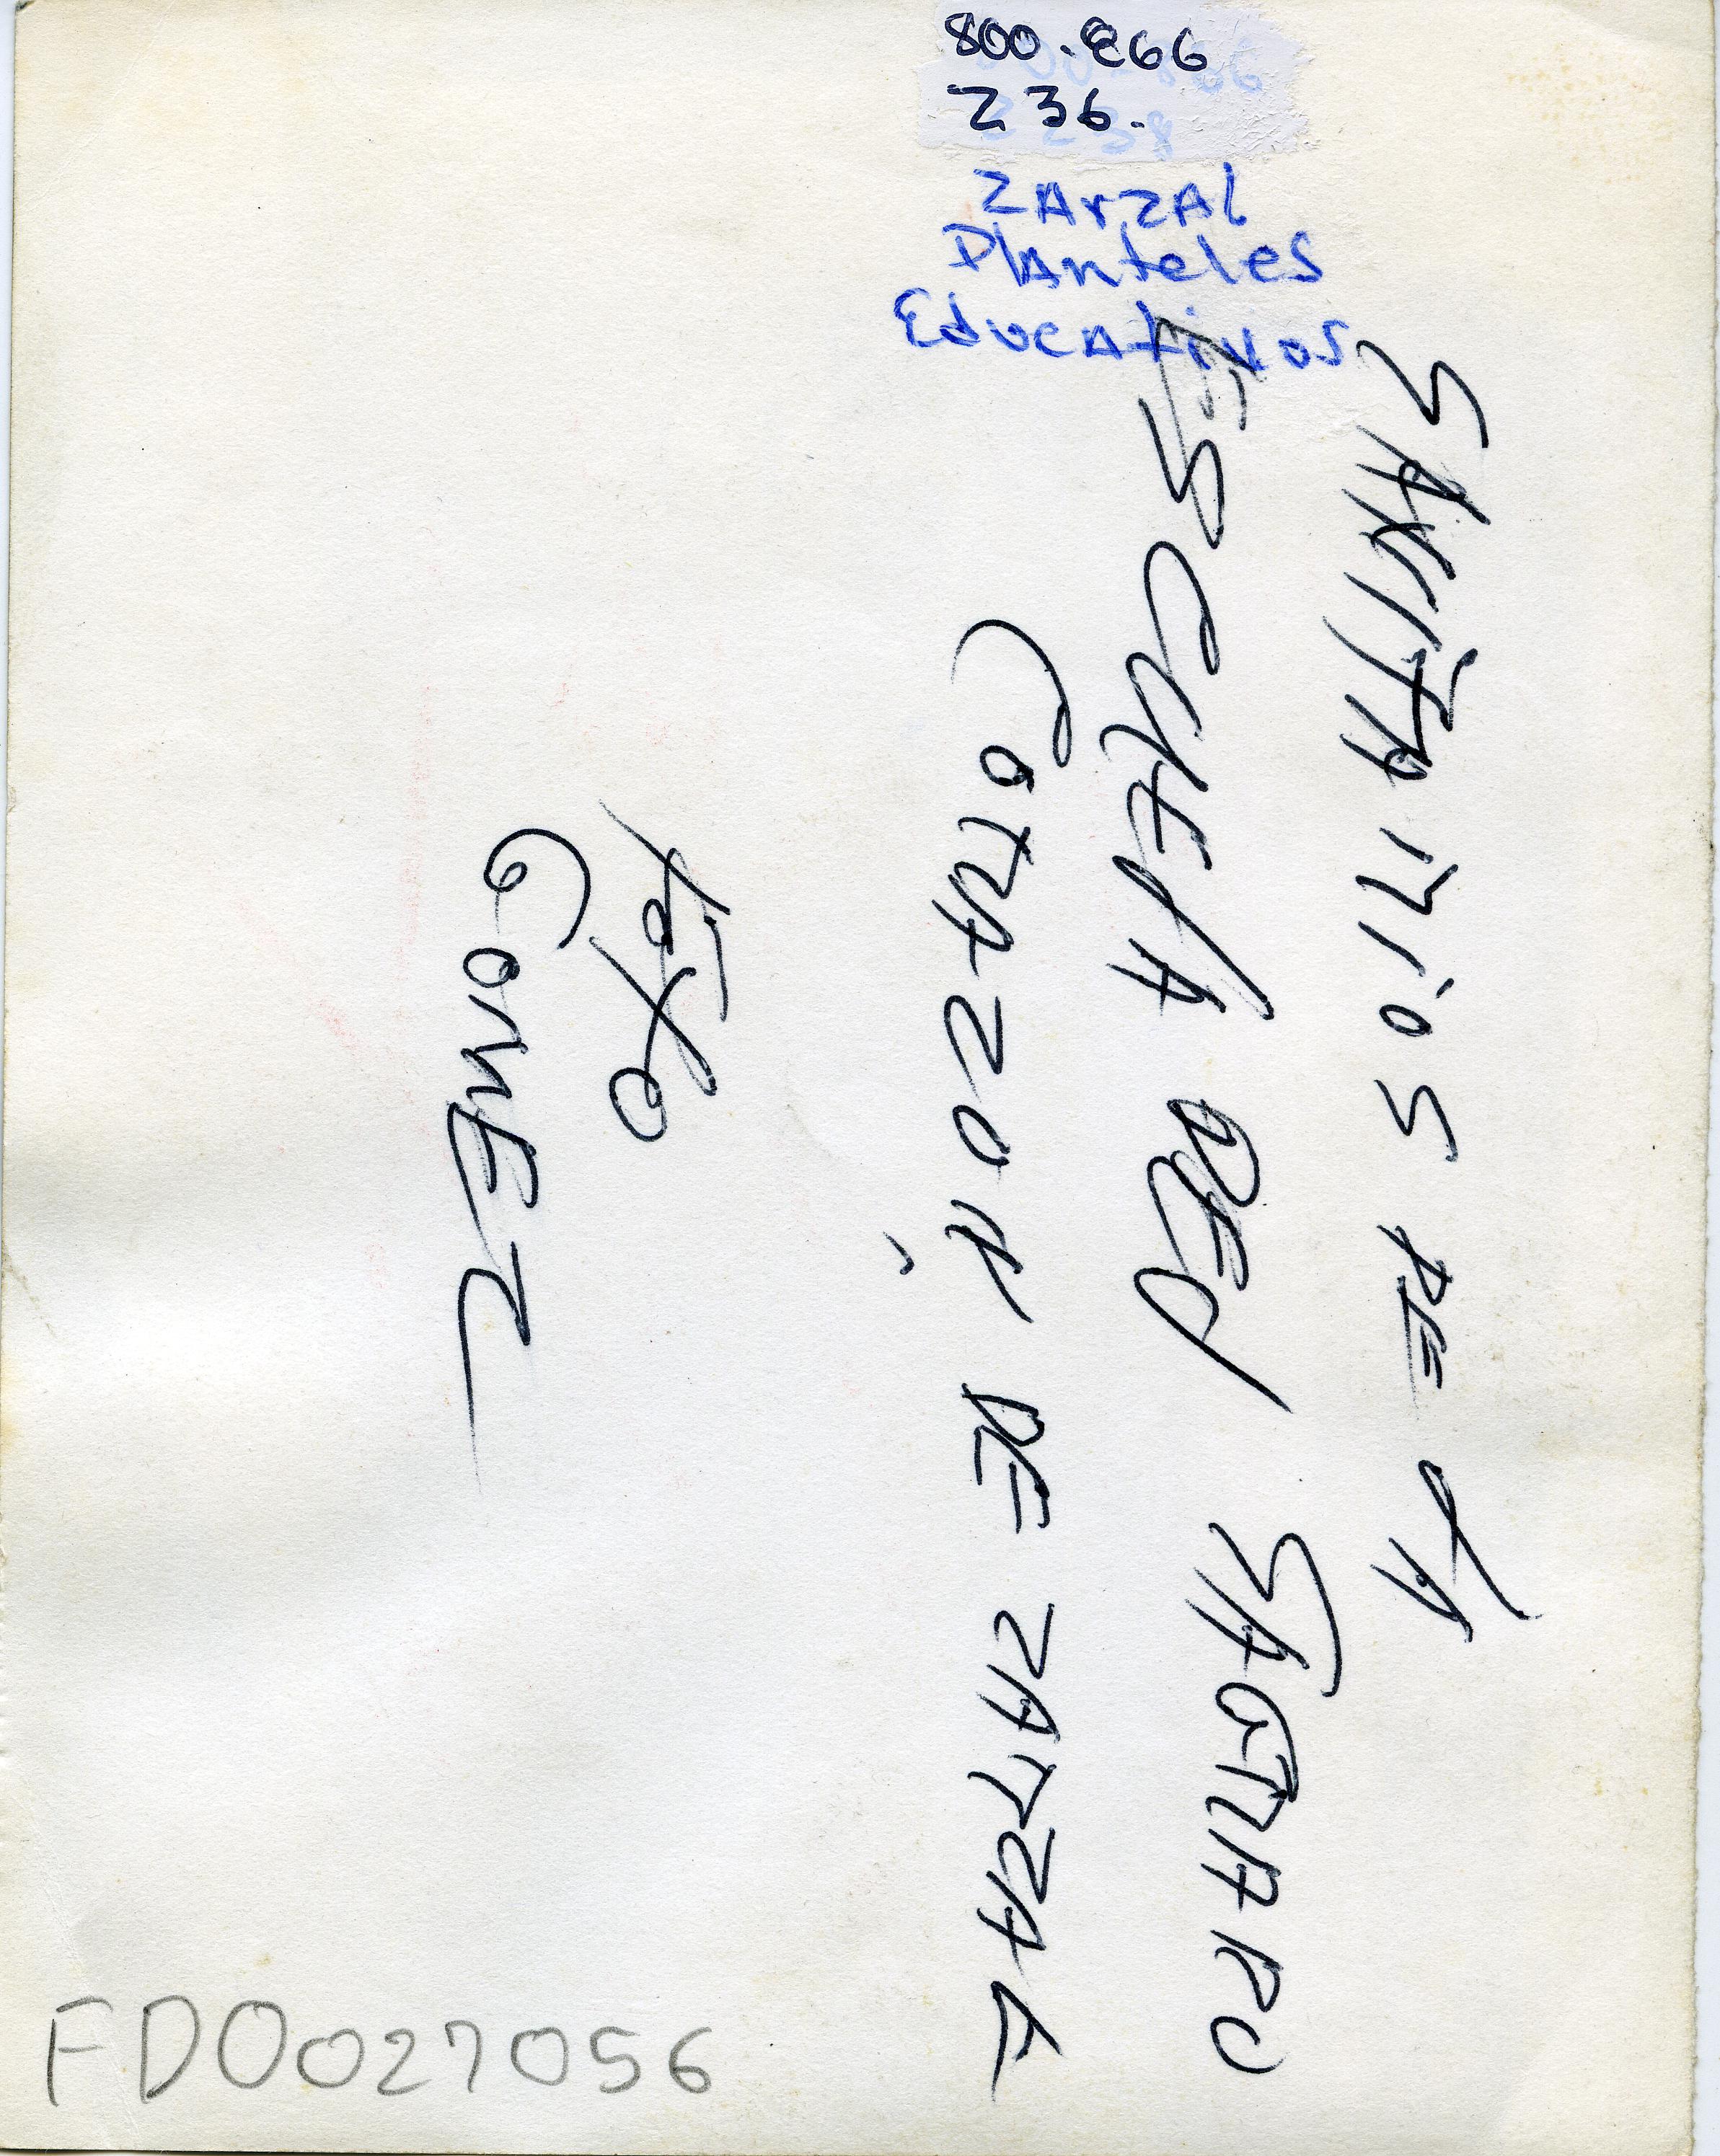 800.866
Z 36.
ZArzAl
PlAnteles
EducAtivos
SANITARIOS DE LA
ESCUELA DEL SAGRADO
CORAZON DE ZARZAL
FOTO
GOMEZ
FDO027056